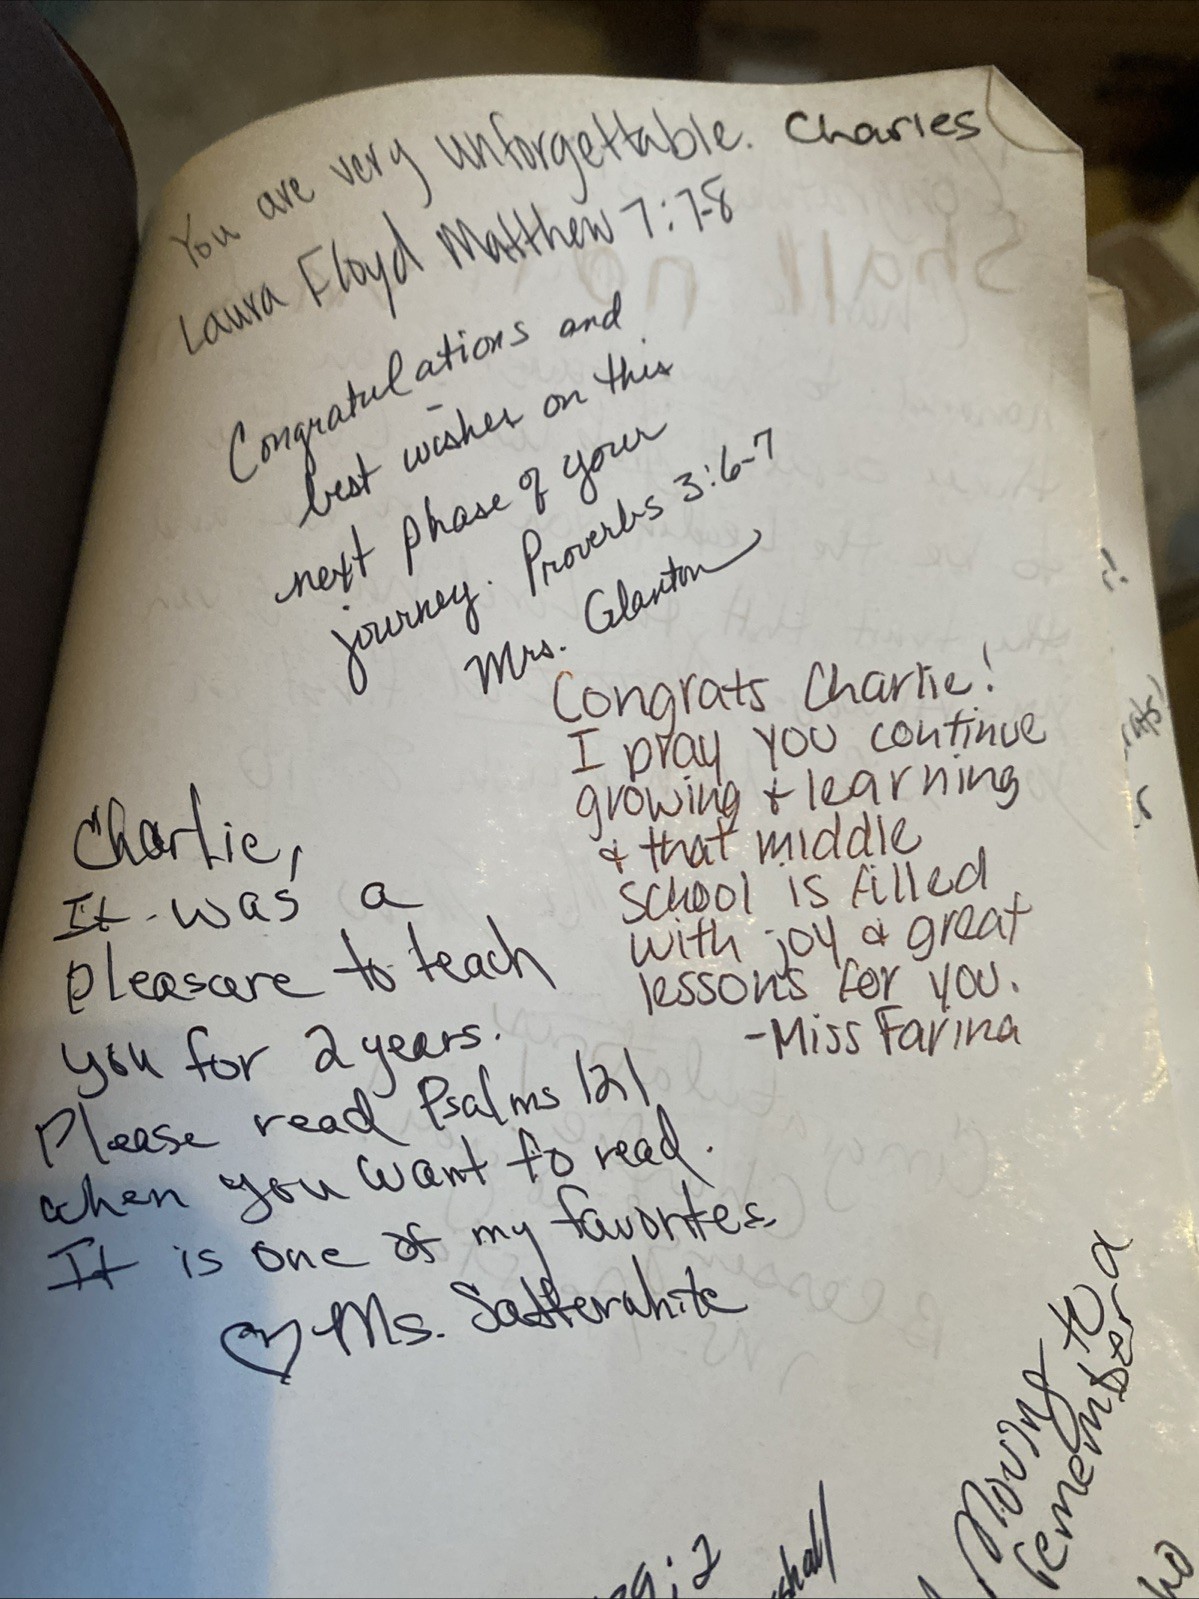 You are very unforgettable. Charles
Laura Floyd Matthew 7:7-8
Congratulations and
best wishes on this
next phase of your
journey. Proverbs 3:6-7
Mrs. Glanton
Congrats Charlie!
I pray you continue
growing & learning
& that middle
school is filled
with joy & great
lessons for you.
-Miss Farina
Charlie,
It was a
pleasure to teach
you for 2 years.
Please read Psalms 121
when you want to read.
It is one of my favorites.
♡ Ms. Satterwhite
Moving to
remember a